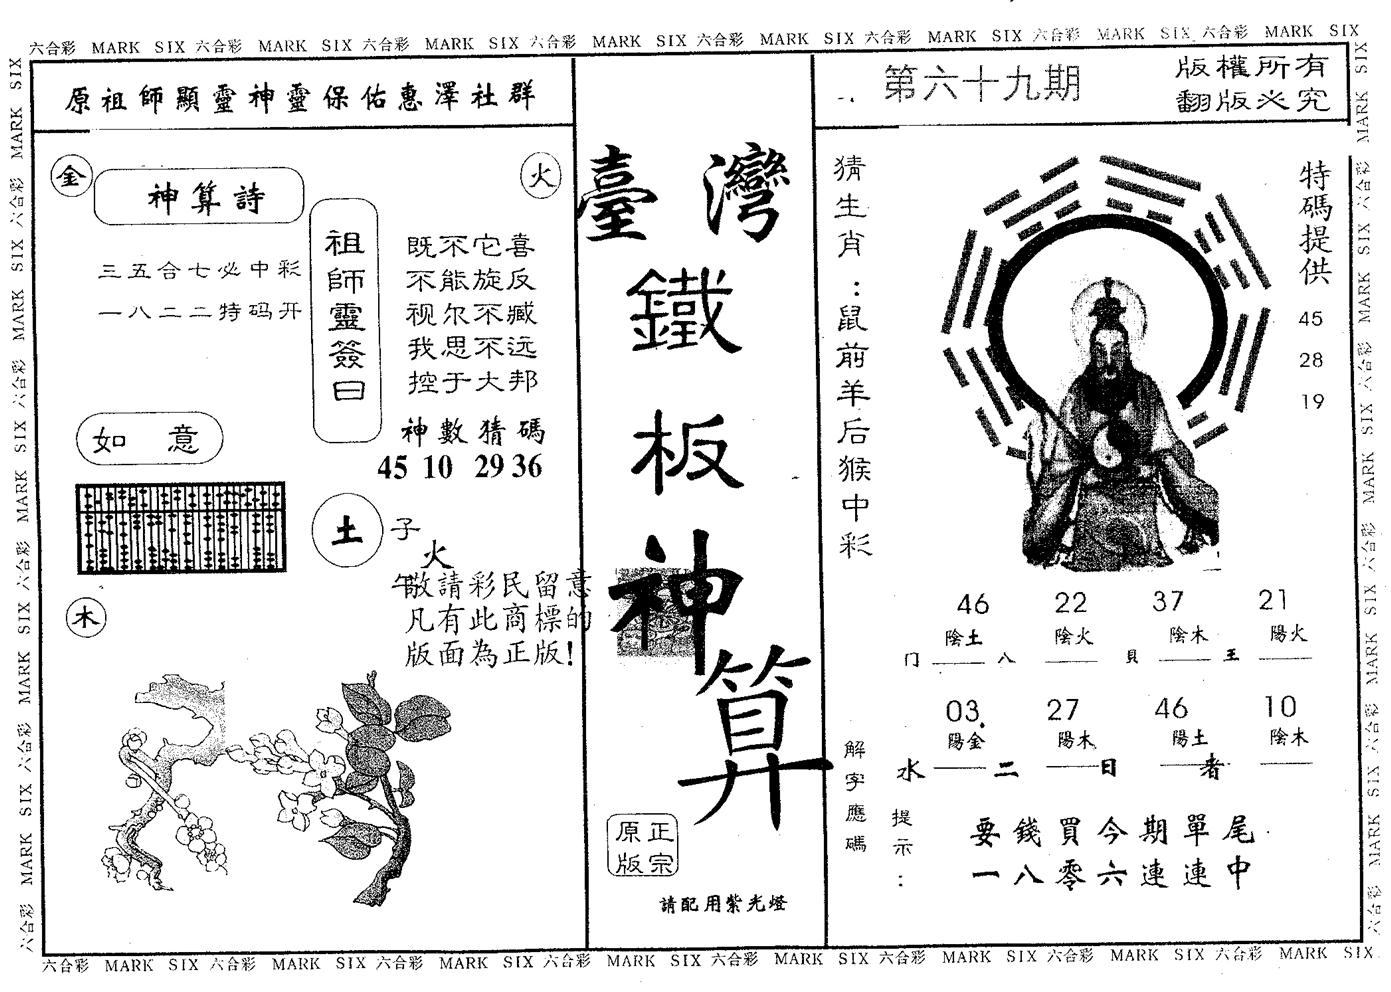 六合彩 MARK SIX 六合彩 MARK SIX 六合彩 MARK SIX 六合彩 MARK SIX 六合彩 MARK SIX 六合彩 MARK SIX 六合彩 MARK SIX 六合彩 MARK SIX
原祖師顯靈神靈保佑惠澤社群
金
神算詩
火
三五合七必中彩
一八二二特码开
祖師靈簽曰
既不它喜
不能旋反
视尔不臧
我思不远
控于大邦
神數猜碼
45 10 29 36
如意
土
子
火
午
敬請彩民留意
凡有此商標的
版面為正版!
木
臺灣
鐵
板
神
算
正宗
原版
請配用紫光燈
第六十九期
版權所有
翻版必究
猜生肖:鼠前羊后猴中彩
特碼提供
45
28
19
46 22 37 21
陰土 陰火 陰木 陽火
门 八 貝 王
03 27 46 10
陽金 陽木 陽土 陰木
水 二 日 者
解字應碼
提示:
要錢買今期單尾
一八零六連連中
六合彩 MARK SIX 六合彩 MARK SIX 六合彩 MARK SIX 六合彩 MARK SIX 六合彩 MARK SIX
六合彩 MARK SIX 六合彩 MARK SIX 六合彩 MARK SIX 六合彩 MARK SIX 六合彩 MARK SIX
六合彩 MARK SIX 六合彩 MARK SIX 六合彩 MARK SIX 六合彩 MARK SIX 六合彩 MARK SIX 六合彩 MARK SIX 六合彩 MARK SIX 六合彩 MARK SIX